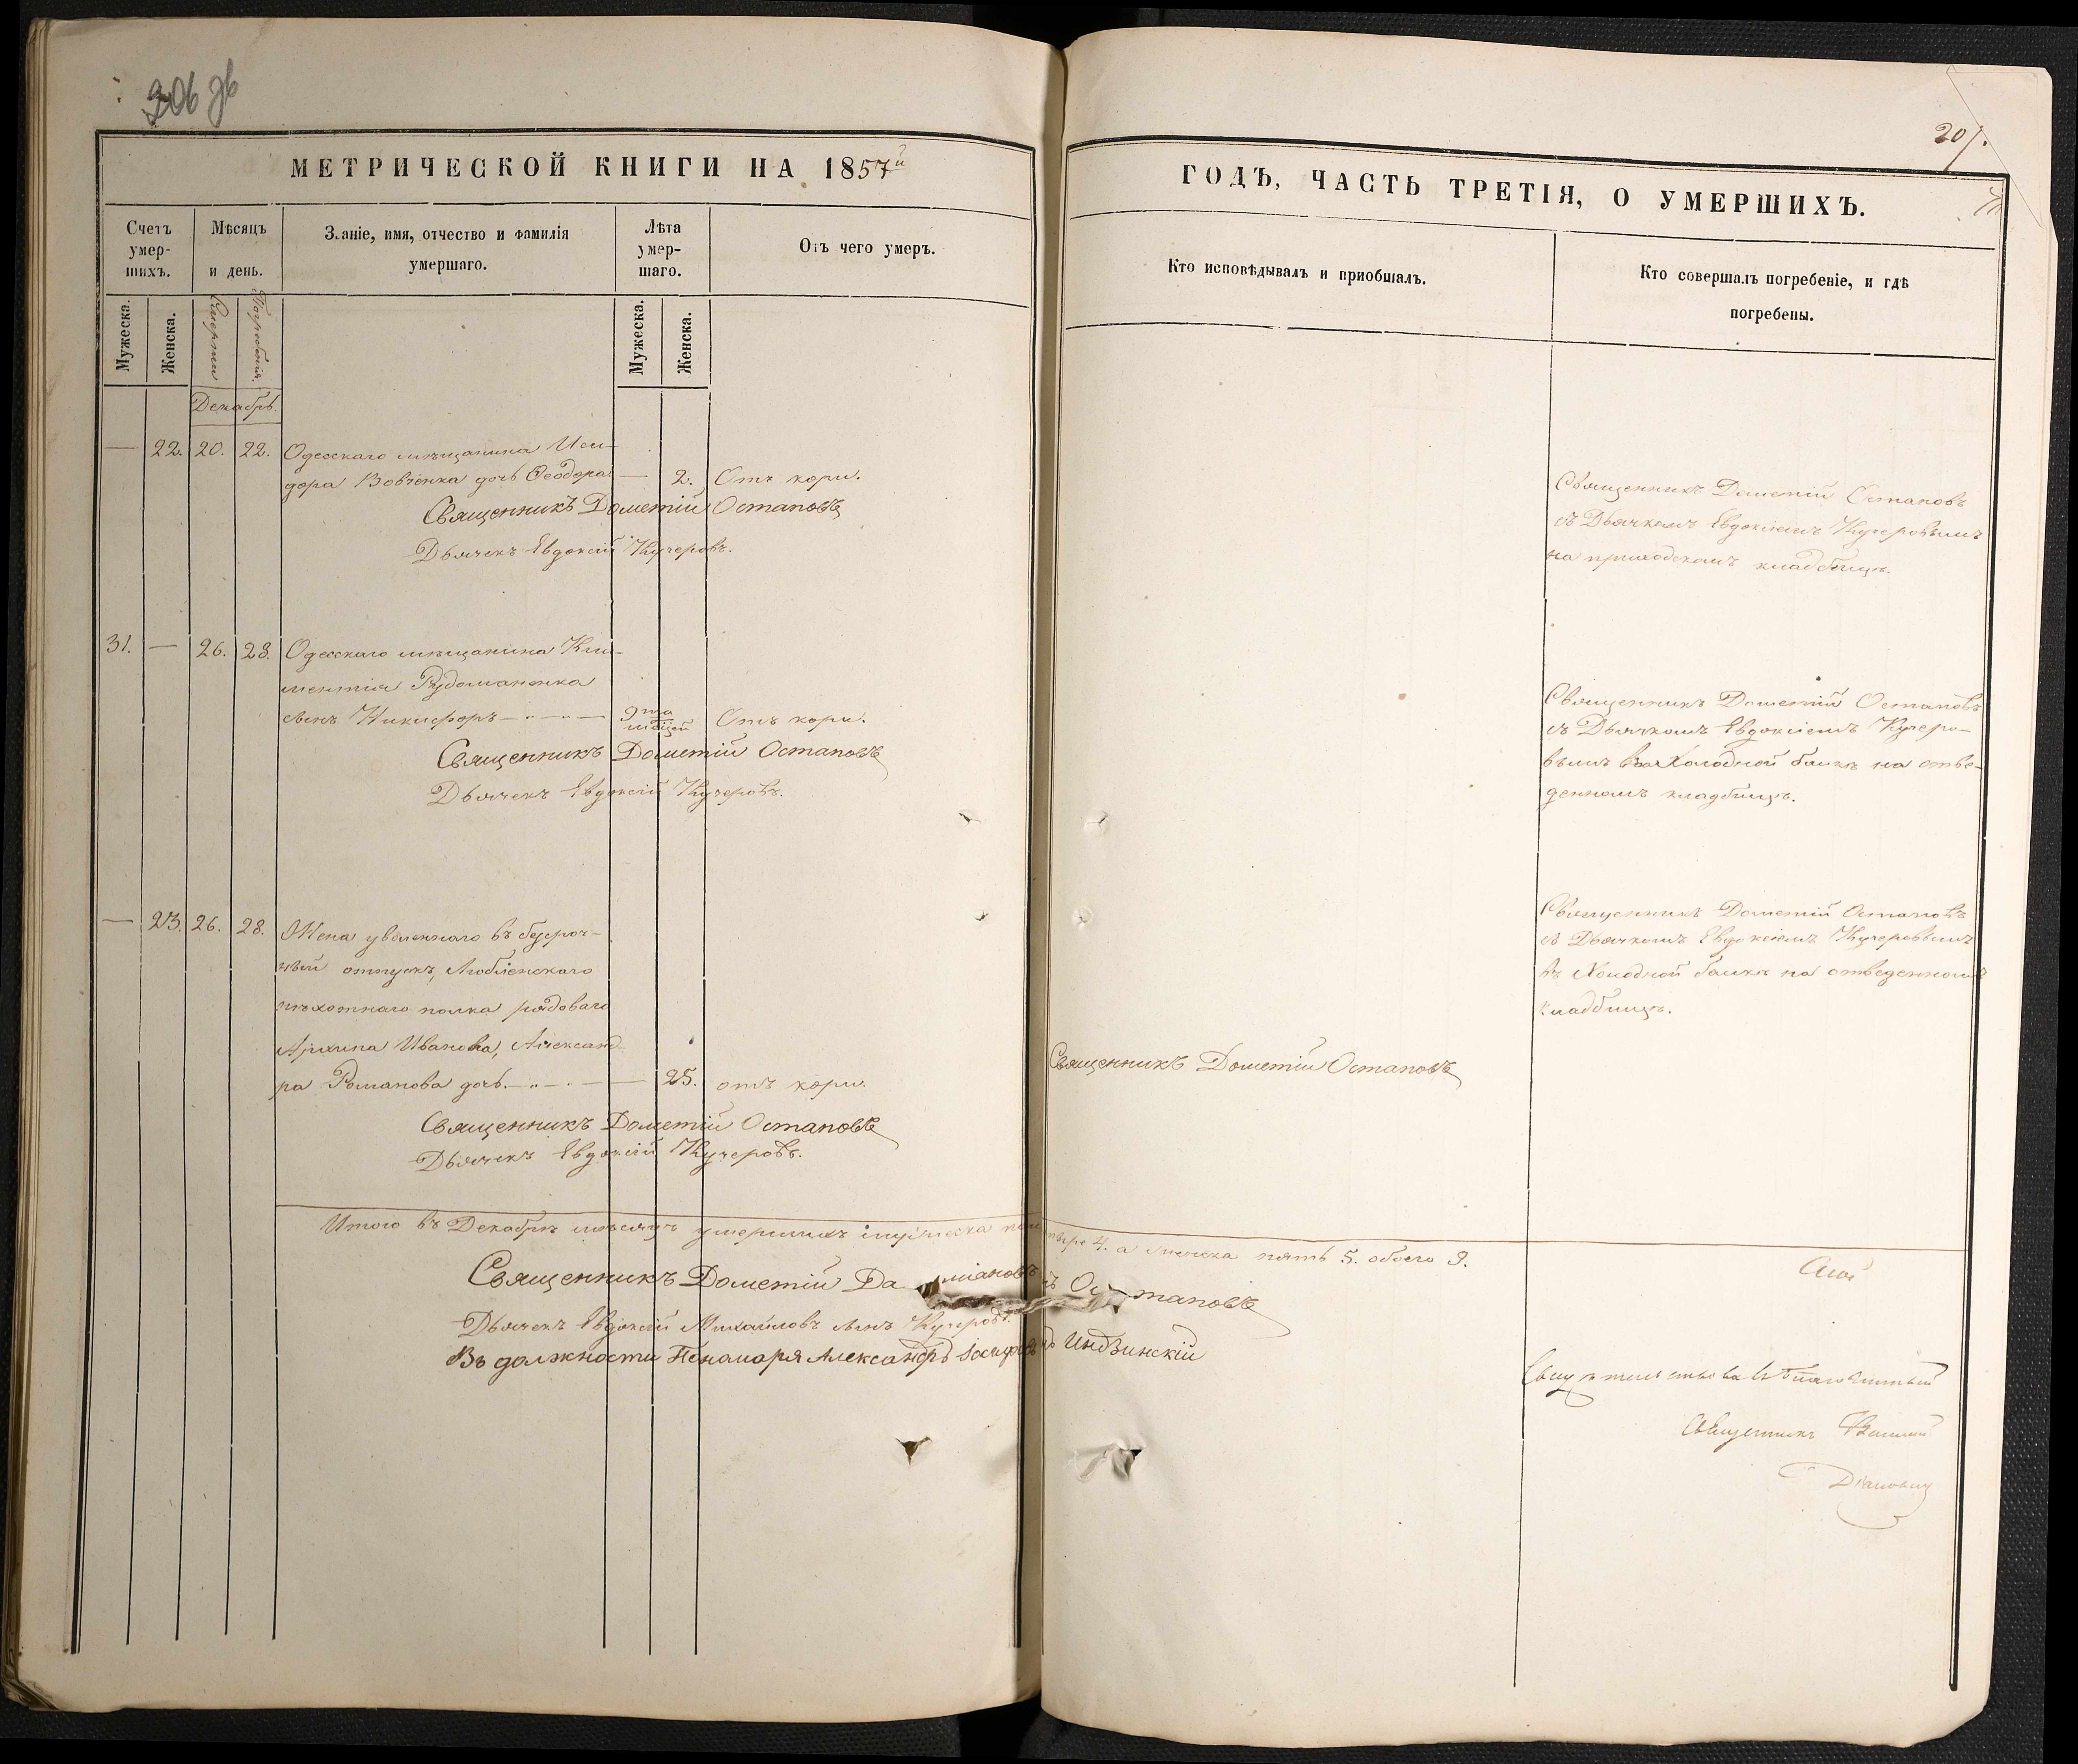 206 об
МЕТРИЧЕСКОЙ КНИГИ НА 1857й
Счетъ умер-шихъ.
Мѣсяцъ и день.
Званіе, имя, отчество и фамилія умершаго.
Лѣта умер-шаго.
Отъ чего умеръ.
Мужеска.
Женска.
Смерти
Погребенія.
Мужеска.
Женска.
Декабрь.
— 22. 20. 22. Одесскаго мѣщанина Иси-
дора Вовченка дочь Ѳеодора — 2. Отъ кори.
Священникъ Дометій Остаповъ
Дьячекъ Евдокій Кучеровъ.
31. — 26. 28. Одесскаго мѣщанина Кли-
ментія Рудоманенка
сынъ Никифоръ — 9ти мѣсяцей Отъ кори.
Священникъ Дометій Остаповъ
Дьячекъ Евдокій Кучеровъ.
— 23. 26. 28. Жена уволеннаго въ безсроч-
ный отпускъ, Люблинскаго
пѣхотнаго полка рядоваго
Архипа Иванова, Александ-
ра Романова дочь. — 25. отъ кори.
Священникъ Дометій Остаповъ
Дьячекъ Евдокій Кучеровъ.
Итого въ Декабрѣ мѣсяцѣ умершихъ мужеска пола
Священникъ Дометій Даміановъ
Дьячекъ Евдокій Михайловъ сынъ Кучеровъ.
Въ должности Понамаря Александръ
207.
ГОДЪ, ЧАСТЬ ТРЕТІЯ, О УМЕРШИХЪ.
Кто исповѣдывалъ и приобщалъ.
Кто совершалъ погребеніе, и гдѣ погребены.
Священникъ Дометій Остаповъ
съ Дьячкомъ Евдокіемъ Кучеровымъ
на приходскомъ кладбищѣ.
Священникъ Дометій Остаповъ
съ Дьячкомъ Евдокіемъ Кучеро-
вымъ въ Холодной балкѣ на отве-
денномъ кладбищѣ.
Священникъ Дометій Остаповъ
съ Дьячкомъ Евдокіемъ Кучеровымъ
въ Холодной балкѣ на отведенномъ
кладбищѣ.
Священникъ Дометій Остаповъ
4. а женска пять 5. обоего 9.
Остаповъ
Священникъ